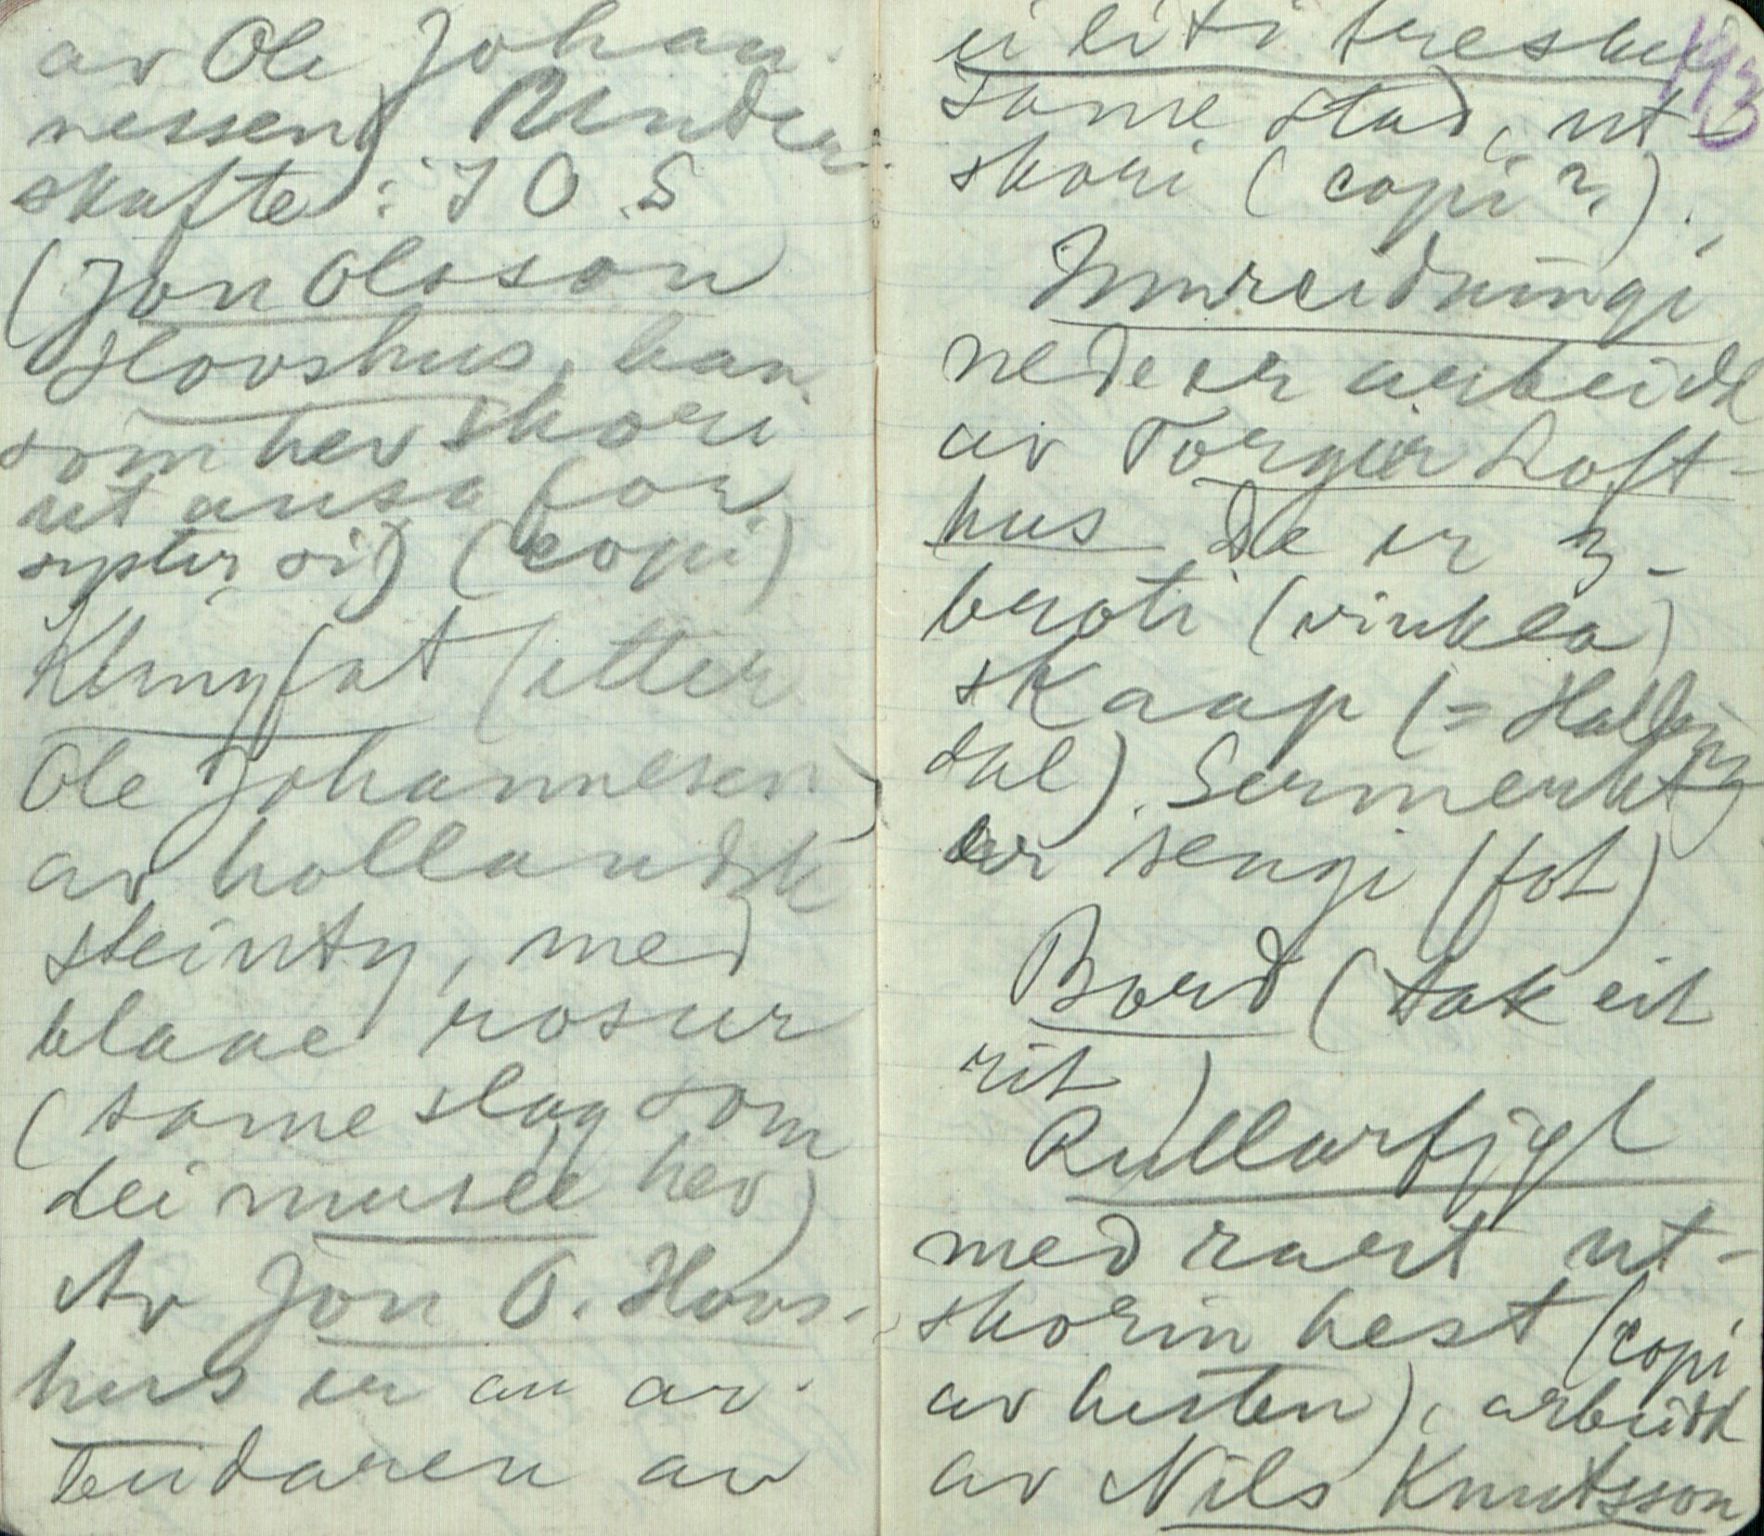 av Ole Johan-
nessen) Under
skafte: J O S
(Jon Olsson
Hovshus, han
som hev skori
ut ausa for
syster si) (copi)
Klungfat (etter
Ole Johannesen)
av hollandsk
steinty, med
blaae rosur
(same slag som
dei museé hev)
Av Jon O. Hovs-
hus er au ar-
beidaren av
ei liti treskur
same stad, ut-
skori (copi?).
Innreidningi
nede er arbeidd
av Torgeir Loft-
hus De er 3-
broti (vinkla)
skaap (= Halling
dal). Sermerkt
er sengi (fot)
Bord (tak eit
rit)
Rullarfjyl
med rart ut-
skorin hest (copi
av hesten), arbeidd
av Nils Knutsson
193